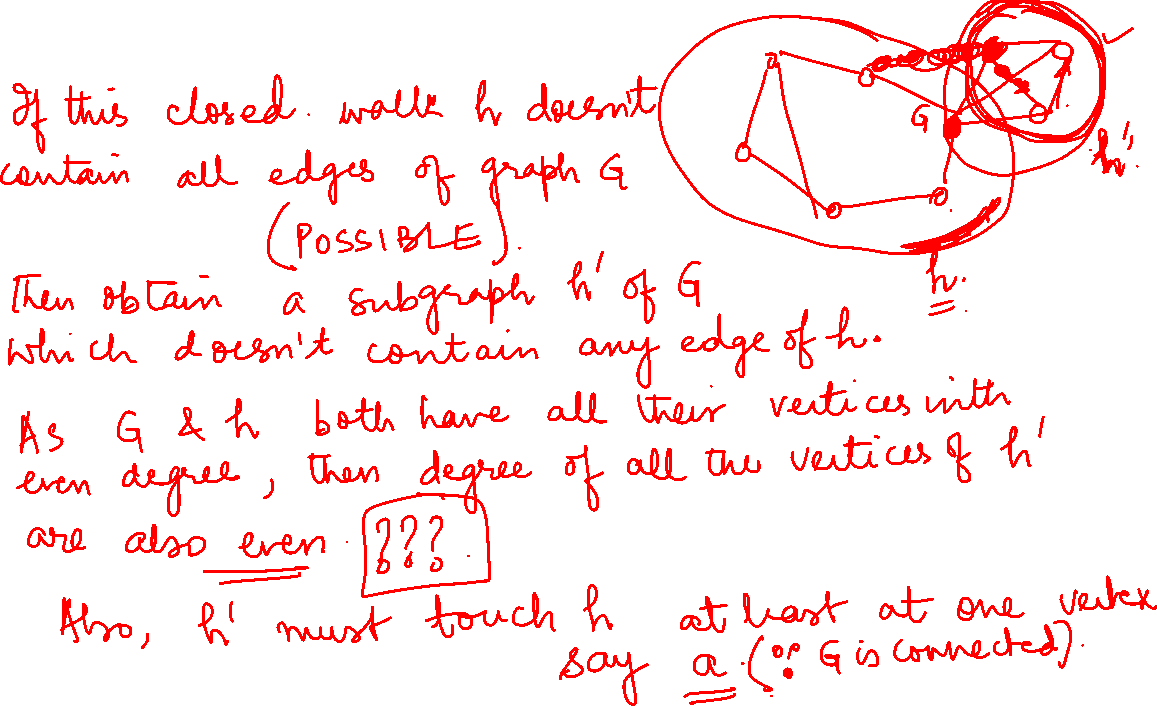 If this closed walk h doesn't
contain all edges of graph G
(POSSIBLE).
Then obtain a subgraph h' of G
which doesn't contain any edge of h.
As G & h both have all their vertices with
even degree, then degree of all the vertices of h'
are also even. ???
Also, h' must touch h at least at one vertex
say a. (∵ G is connected).
G
h'.
h.